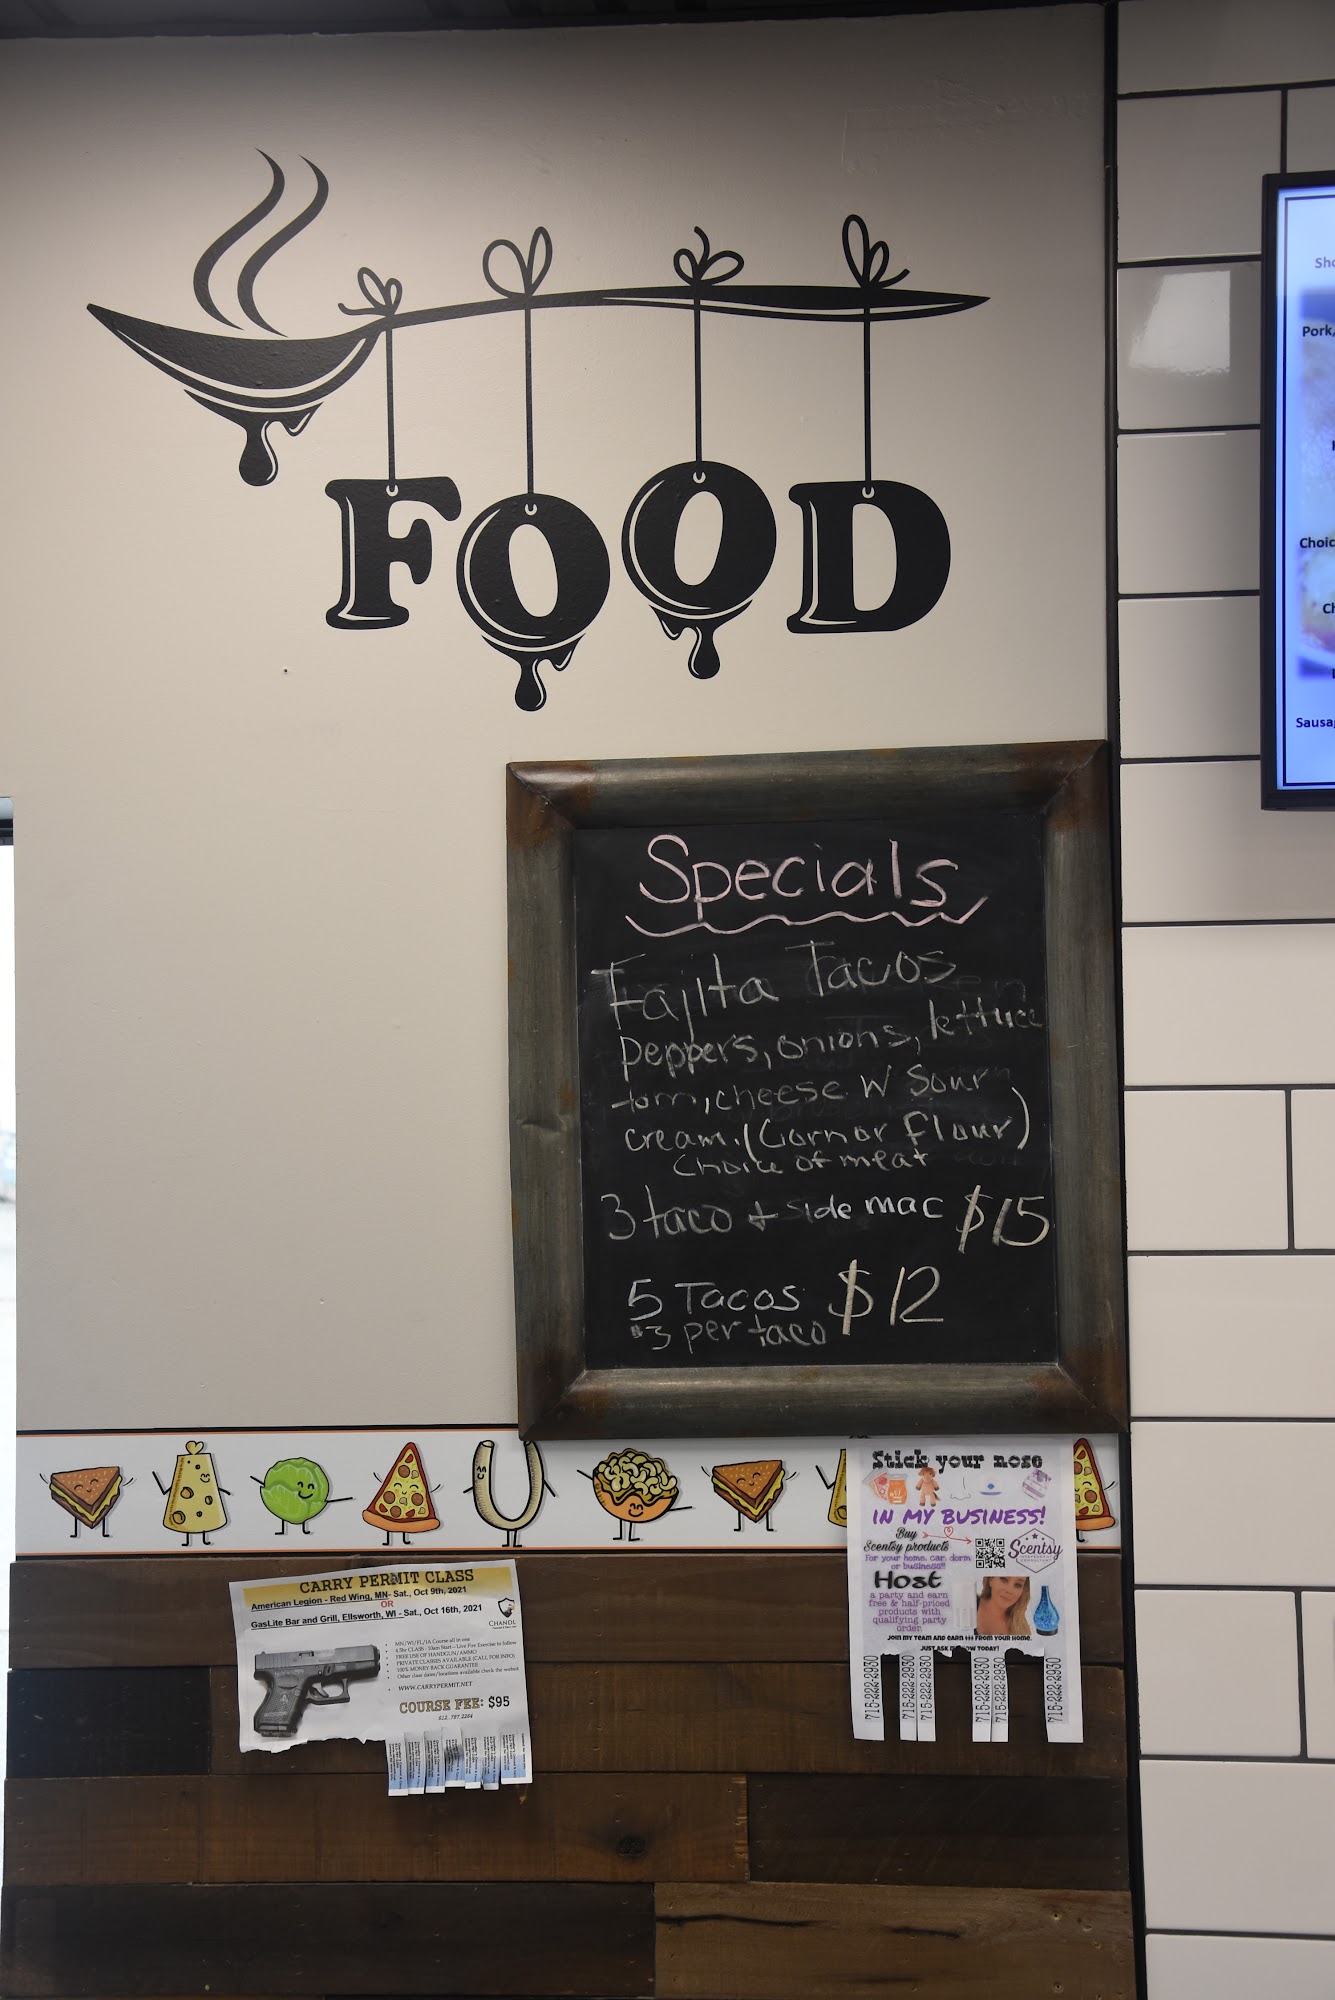 FOOD
Sho
Pork,
Choic
Ch
Sausa
Specials
Fajita Tacos
peppers, onions, lettuce
tom, cheese W Sour
cream. (Corn or Flour)
Choice of meat
3 taco + side mac $15
5 Tacos $12
$3 per taco
Stick your nose
IN MY BUSINESS!
Buy
Scentsy products
For your home, car, dorm
or business!!
Scentsy
INDEPENDENT
CONSULTANT
Host
a party and earn
free & half-priced
products with
qualifying party
order.
JOIN MY TEAM AND EARN $$$ FROM YOUR HOME.
JUST ASK HOW TODAY!
715-222-2930
715-222-2930
715-222-2930
715-222-2930
715-222-2930
715-222-2930
CARRY PERMIT CLASS
American Legion - Red Wing, MN- Sat., Oct 9th, 2021
OR
GasLite Bar and Grill, Ellsworth, WI - Sat., Oct 16th, 2021
MN/WI/FL/IA Course all in one
4.5hr CLASS - 10am Start - Live Fire Exercise to follow
FREE USE OF HANDGUN/AMMO
PRIVATE CLASSES AVAILABLE (CALL FOR INFO)
100% MONEY BACK GUARANTEE
Other class dates/locations available check the websit
WWW.CARRYPERMIT.NET
COURSE FEE: $95
612.787.2264